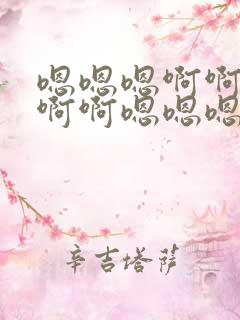 嗯嗯嗯啊啊
啊啊嗯嗯嗯
辛吉塔萨